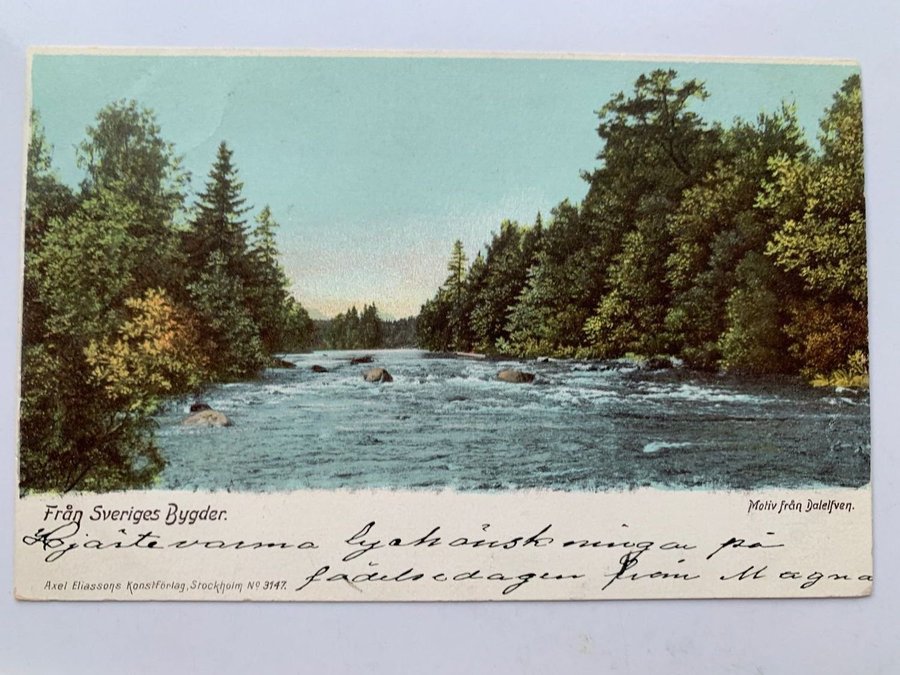 Från Sveriges Bygder.
Motiv från Dalelfven.
Hjärtevarma lyckönskningar på
födelsedagen från Magna
Axel Eliassons Konstförlag, Stockholm Nº 3147.